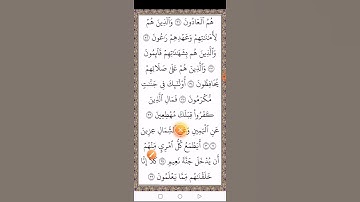 هُمُ ٱلْعَادُونَ ٣١ وَٱلَّذِينَ هُمْ
لِأَمَـٰنَـٰتِهِمْ وَعَهْدِهِمْ رَٰعُونَ ٣٢
وَٱلَّذِينَ هُم بِشَهَـٰدَٰتِهِمْ قَآئِمُونَ
٣٣ وَٱلَّذِينَ هُمْ عَلَىٰ صَلَاتِهِمْ
يُحَافِظُونَ ٣٤ أُو۟لَـٰٓئِكَ فِى جَنَّـٰتٍ
مُّكْرَمُونَ ٣٥ فَمَالِ ٱلَّذِينَ
كَفَرُوا۟ قِبَلَكَ مُهْطِعِينَ ٣٦
عَنِ ٱلْيَمِينِ وَعَنِ ٱلشِّمَالِ عِزِينَ
٣٧ أَيَطْمَعُ كُلُّ ٱمْرِئٍ مِّنْهُمْ
أَن يُدْخَلَ جَنَّةَ نَعِيمٍ ٣٨ كَلَّآ إِنَّا
خَلَقْنَـٰهُم مِّمَّا يَعْلَمُونَ ٣٩